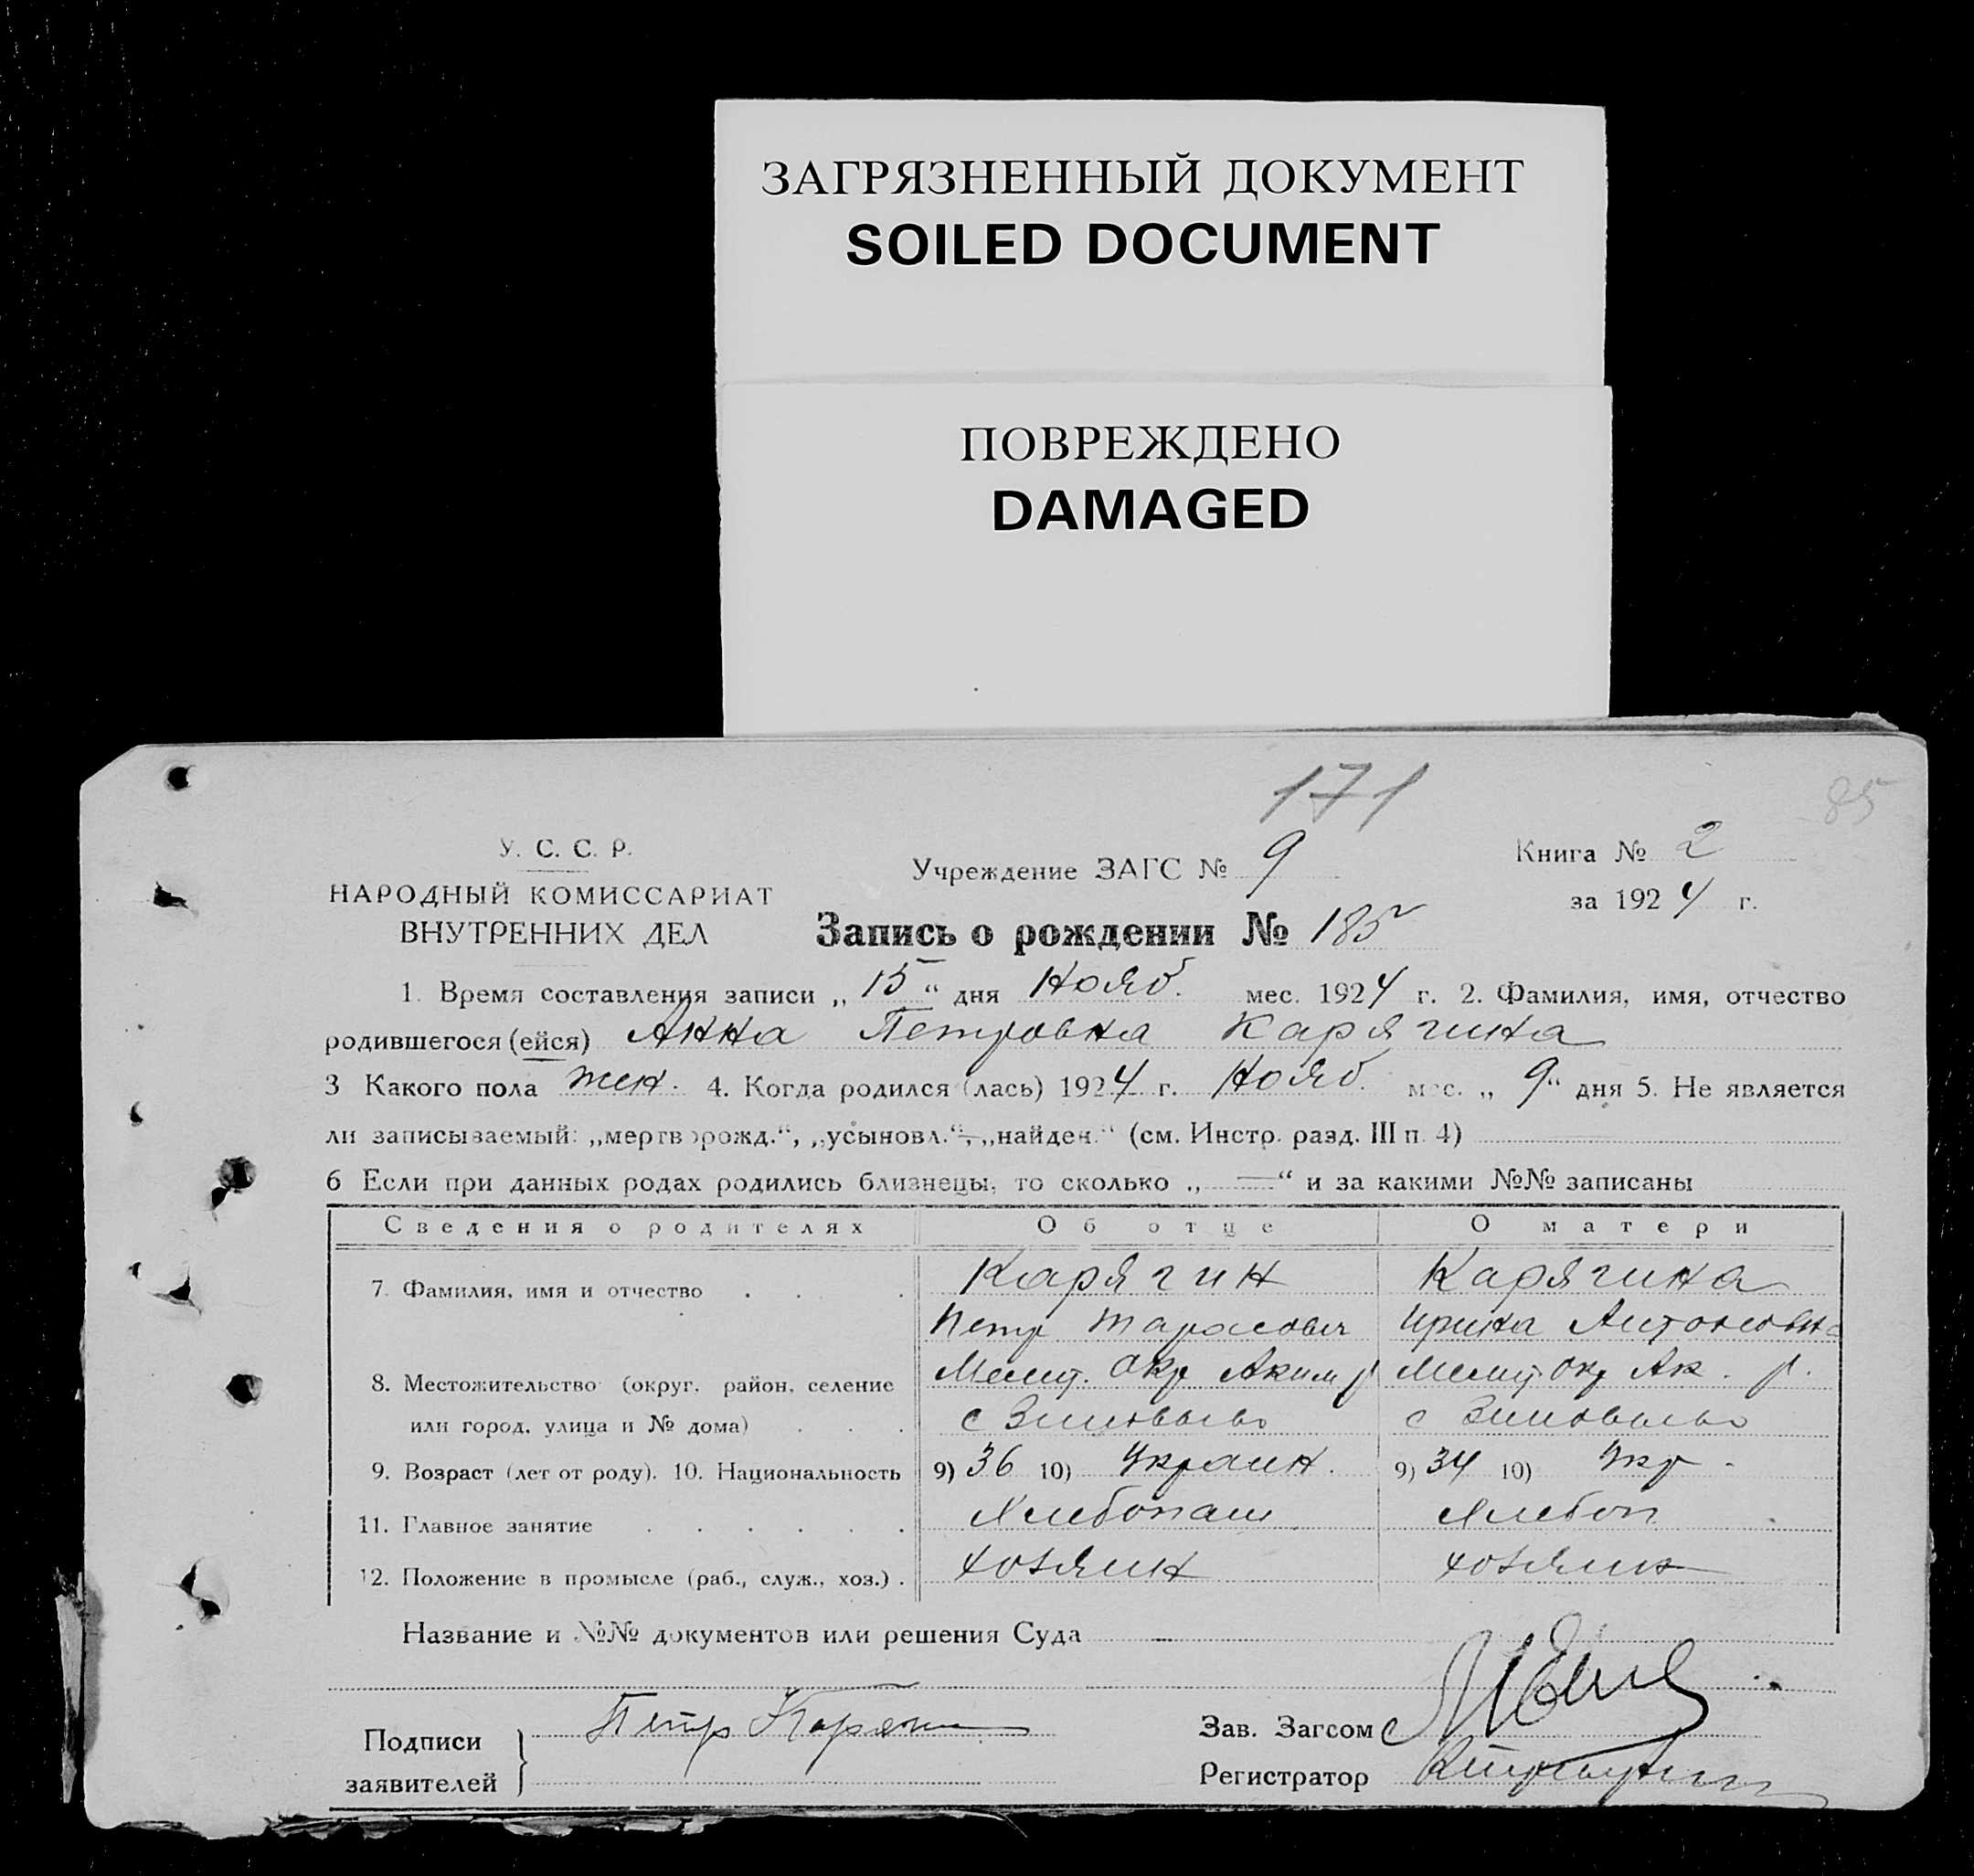 ЗАГРЯЗНЕННЫЙ ДОКУМЕНТ
SOILED DOCUMENT
ПОВРЕЖДЕНО
DAMAGED
171
85
У. С. С. Р.
НАРОДНЫЙ КОМИССАРИАТ
ВНУТРЕННИХ ДЕЛ
Учреждение ЗАГС № 9
Книга № 2
за 1924 г.
Запись о рождении № 185
1. Время составления записи „15“ дня Нояб. мес. 1924 г. 2. Фамилия, имя, отчество
родившегося (ейся) Анна Петровна Карягина
3 Какого пола жен. 4. Когда родился (лась) 1924 г. Нояб. мес. „9“ дня 5. Не является
ли записываемый: „мертворожд.“, „усыновл.“, „найден.“ (см. Инстр. разд. III п. 4)
6 Если при данных родах родились близнецы, то сколько „—“ и за какими №№ записаны
Сведения о родителях Об отце О матери
7. Фамилия, имя и отчество Карягин Карягина
Петр Тарасович Ирина Антоновна
8. Местожительство (округ, район, селение Мелит. Окр Аким р Мелит Окр Ак. р.
или город, улица и № дома) с с
9. Возраст (лет от роду). 10. Национальность 9) 36 10) Украин. 9) 34 10) Укр.
11. Главное занятие Хлебопаш Хлебоп
12. Положение в промысле (раб., служ., хоз.) . хозяин хозяин
Название и №№ документов или решения Суда —
Подписи Петр Карягин Зав. Загсом
заявителей Регистратор